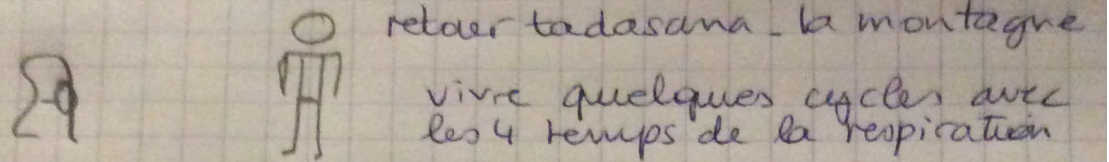 29
retour tadasana - la montagne
vivre quelques cycles avec
les 4 temps de la respiration